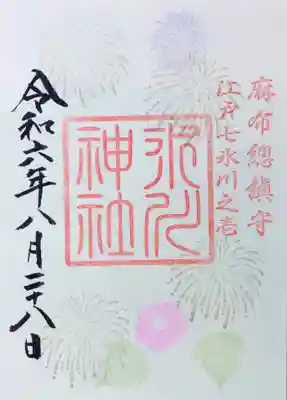 麻布總鎮守
江戸七氷川之壱
氷川
神社
令和六年八月二十八日